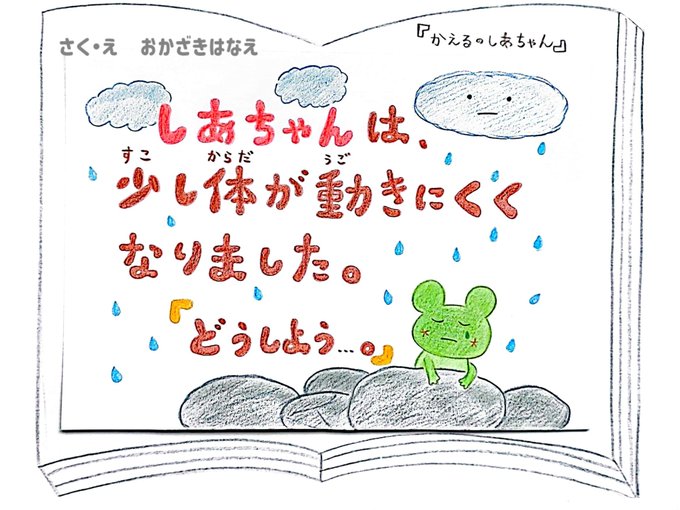 さく・え　おかざきはなえ
『かえるのしあちゃん』
しあちゃんは、
すこ からだ うご
少し体が動きにくく
なりました。
『どうしよう…。』